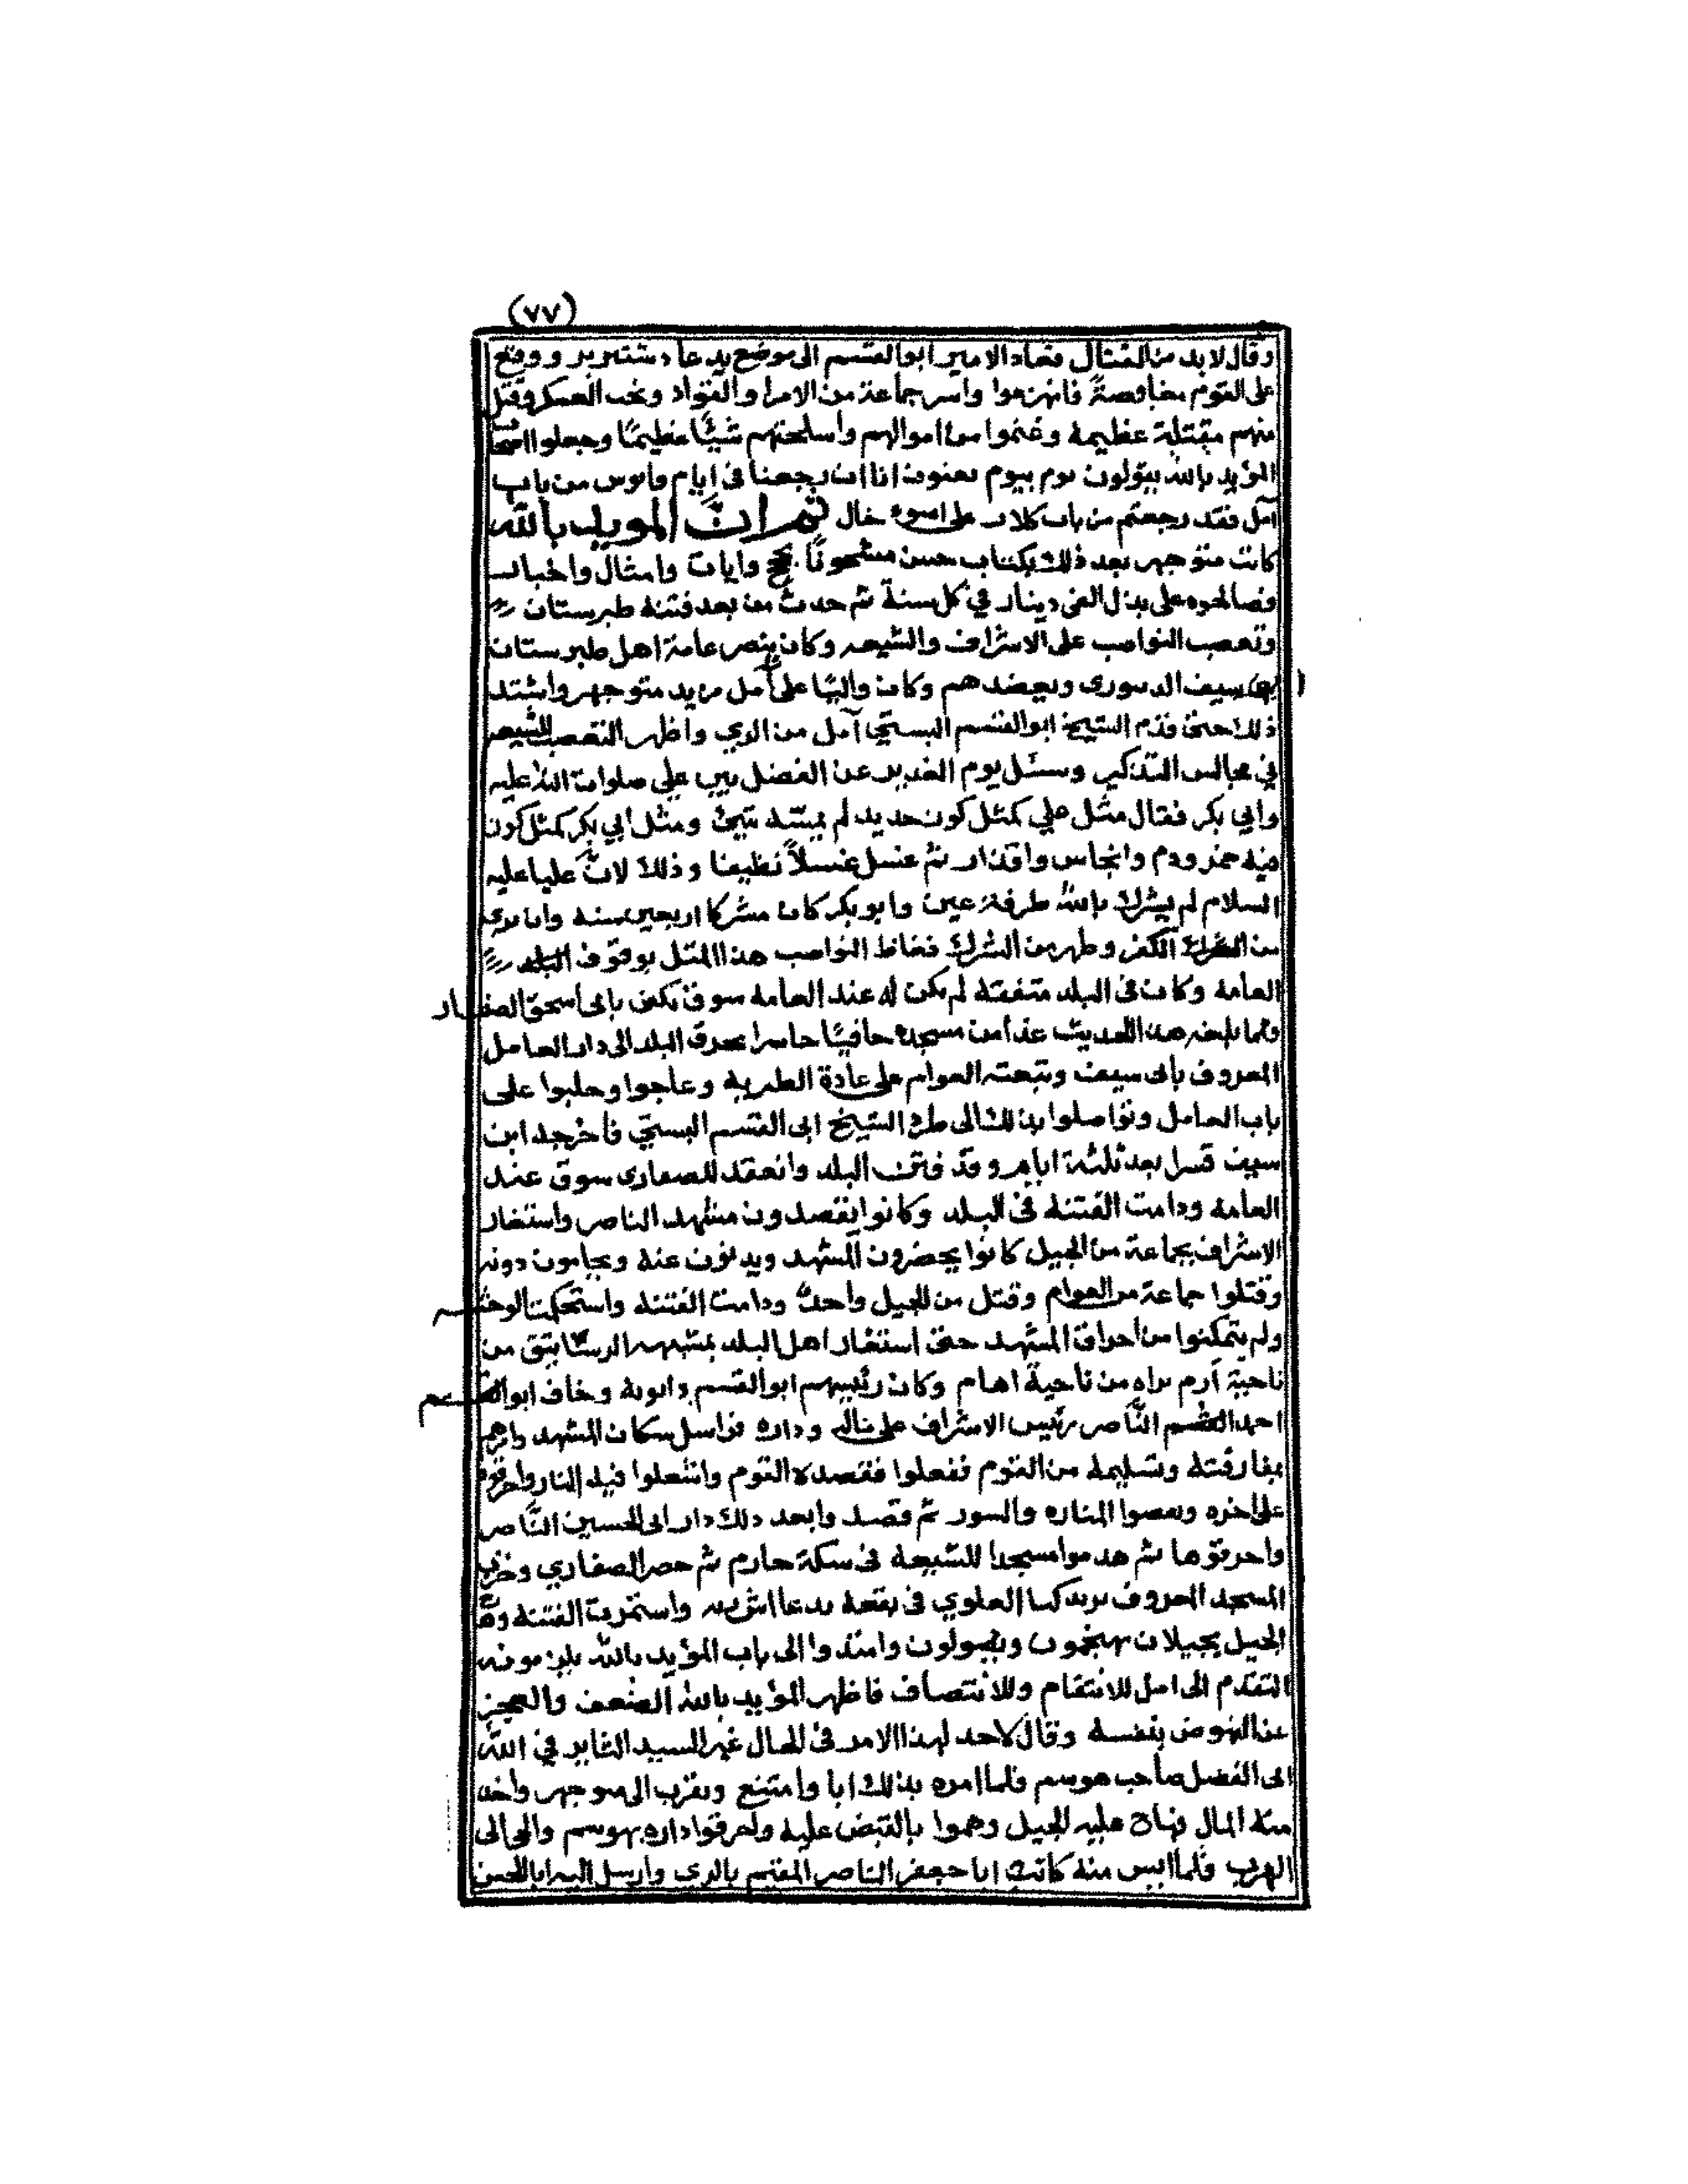 (٧٧)
وقال لا بد من القتال فعاد الامير ابوالقسم الى موضع يدعا دشتبربر ووقع
على القوم مغافصةً فانهزموا واسر جماعة من الامرا والقواد ونخب العسكر وقتل
منهم مقتلة عظيمة وغنموا من اموالهم واسلحتهم شيئًا عظيمًا وجعلوا اصحاب
المؤيد بالله يقولون يوم بيوم يعنون انا ان رجعنا في ايام قابوس من باب
آمل فقد رجعتم من باب كلار على اسوء حال ثم ان المويد بالله
كاتب منوجهر بعد ذلك بكتاب حسن مشحونًا بحجج وايات وامثال واخبار
فصالحوه على بذل الفي دينار في كل سنة ثم حدث من بعد فتنة طبرستان
وتعصب النواصب على الاشراف والشيعه وكان ينصر عامة اهل طبرستان
سيف الدسورى ويعضدهم وكان واليًا على آمل من يد منوجهر واشتد
ذلك حتى قدم الشيخ ابوالقسم البستي آمل من الري واظهر التعصب للشيعه
في مجالس التذكير وسئل يوم الغدير عن الفضل بين علي صلوات الله عليه
وابي بكر فقال مثل علي كمثل كوز حديد لم يمسّه شيئ ومثل ابي بكر كمثل كوز
فيه خمر ودم وانجاس واقذار ثم غسل غسلاً نظيفا وذلك لانّ عليا عليه
السلام لم يشرك بالله طرفة عين وابو بكر كان مشركا اربعين سنه وان برى
من الكفر وطهر من الشرك فغاظ النواصب هذا المثل بوقوف البلد
العامه وكان في البلد متفقه لم يكن له عند العامه سوق يكنى بابى اسحق الصفار
فلما بلغه هذا الحديث غدا من مسجده حافيًا حاسرا يحرق البلد الى دار العامل
المعروف بابى سيف وتبعته العوام على عادة الطبريه وعاجوا وجلبوا على
باب العامل وتواصلوا بذلك الى طرد الشيخ ابى القسم البستي فاخرجه ابن
سيف قسرا بعد ثلثة ايام وقد فتن البلد وانعقد للصفارى سوق عند
العامه ودامت الفتنه في البلد وكانوا يقصدون مشهد الناصر واستغار
الاشراف بجماعة من الجيل كانوا يحضرون المشهد ويدبون عنه ويحامون دونه
وقتلوا جماعة من العوام وقتل من الجيل واحدٌ ودامت الفتنه واستحكمت الوحشه
ولم يتمكنوا من احراق المشهد حتى استغار اهل البلد الرساتيق من
ناحية آرم براه من ناحية اهام وكان رئيسهم ابوالقسم دابوية وخاف ابوالقسم
احمد القسم النّاصر رئيس الاشراف على خاله وداره فراسل سكان المشهد وامرهم
بمفارقته وتسليمه من القوم ففعلوا فقصده القوم واشعلوا فيه النار واحرقوه
على اخره ونقصوا المناره والسور ثم قصدوا بعد ذلك دار ابى الحسين النّاصر
واحرقوها ثم هدموا مسجدا للشيعه في سكة حازم ثم حصر الصفاري وخرب
المسجد المعروف بزيد كسا العلوي في بقعه يدعا واستمرت الفتنه
الجيل بجيلان يهيجون ويصولون وامتدوا الى باب المؤيد بالله يلزمونه
التقدم الى امل للانتقام وللانتصاف فاظهر المؤيد بالله الضعف والعجز
عن النهوض بنفسه وقال لا احد لهذا الامر في الحال غير السيد الثاير في الله
ابى الفضل صاحب هوسم فلما امره بذلك ابا وامتنع وتقرب الى منوجهر واخذ
منه المال فهاج عليه الجيل وهموا بالقبض عليه واحرقوا داره بهوسم والجى الى
الهرب فلما ايس منه كاتب ابا جعفر الناصر المقيم بالري وارسل اليه ابا الحسن